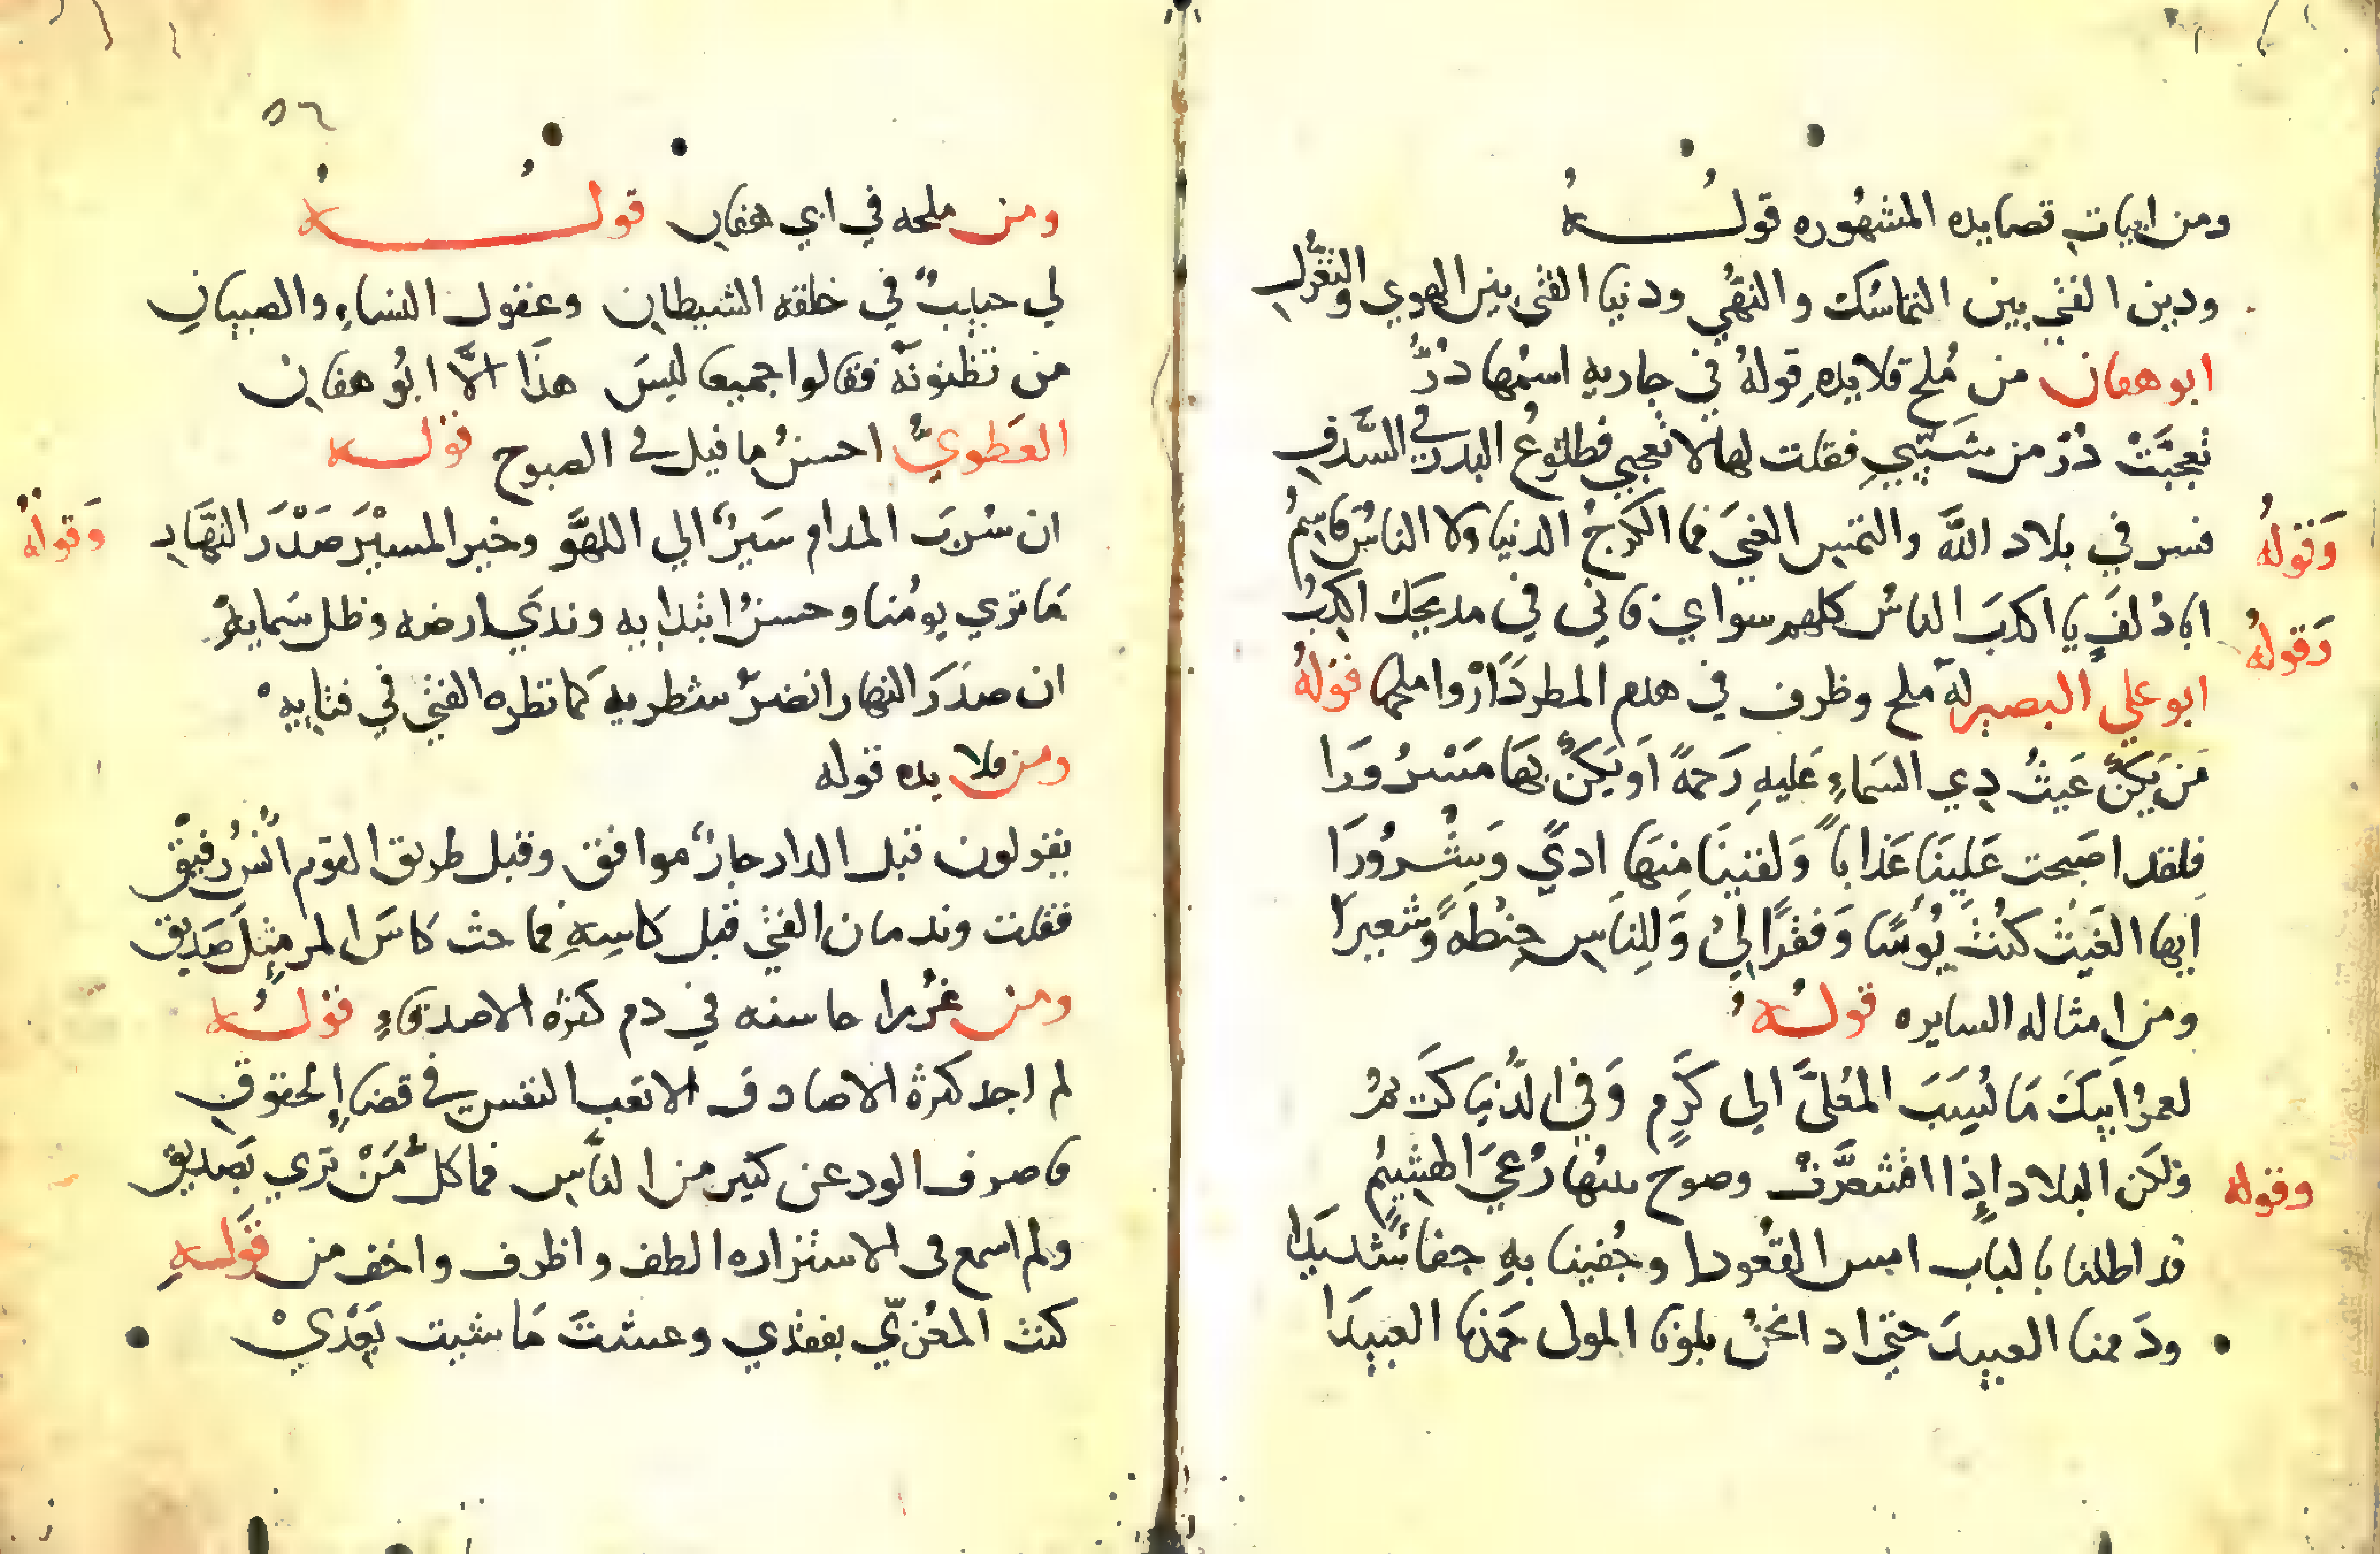 ومن ابيات قصايده المشهوره قوله
ودين الفتى بين التماسك والنهى ودنيا الفتى بين الهوى والتغزل
ابو هفان من ملح قلايده قوله في جاريه اسمها در
تعجبت در من شيبي فقلت لها لا تعجبي فطلوع البدر في السدف
وقوله
فسر في بلاد الله والتمس الغنى فما الكرج الدنيا ولا الناس قاسم
وقوله
ابا دلف يا اكذب الناس كلهم سواي فاني في مديحك اكذب
ابو علي البصير له ملح وظرف في هدم المطر داره واملحها قوله
من يكن غيث ذي السماء عليه رحمة او يكن بها مسرورا
فلقد اصبحت علينا عذابا ولقينا منها اذى وشرورا
ايها الغيث كنت بؤسا وفقرا لي وللناس حنطه وشعيرا
ومن امثاله السايره قوله
لعمر ابيك ما نسب المعلى الى كرم وفي الدنيا كريم
ولكن البلاد إذا اقشعرت وصوح نبتها رعي الهشيم
وقوله
قد اطلنا بالباب امس القعودا وجفينا به جفا شديدا
وذممنا العبيد حتى اذ انحن بلونا المولى حمدنا العبيدا
٥٦
ومن ملحه في ابي هفان قوله
لي حبيب في خلقه الشيطان وعقول النساء والصبيان
من تظنونه فقالوا جميعا ليس هذا الا ابو هفان
العطوي احسن ما قيل في الصبوح قوله
ان شرب المدام سير الي اللهو وخير المسير صدر النهار
وقوله
ما تري يومنا وحسن ابتدايه وندي ارضه وظل سمايه
ان صدر النهار انضر شطريه كما نظره الفتى في فتايه
ومن قلايده قوله
يقولون قبل الدار جار موافق وقبل طريق القوم انس رفيق
فقلت وندمان الفتى قبل كاسه فما حث كاس المر مثل صديق
ومن غرر محاسنه في ذم كثرة الاصدقاء قوله
لم اجد كثرة الاصادق الا تعب النفس في قضاء الحقوق
فاصرف الود عن كثير من الناس فما كل من تري بصديق
ولم اسمع في الاستزاره الطف واظرف واخف من قوله
كنت المعزي بفقدي وعشت ما شيت بعدي